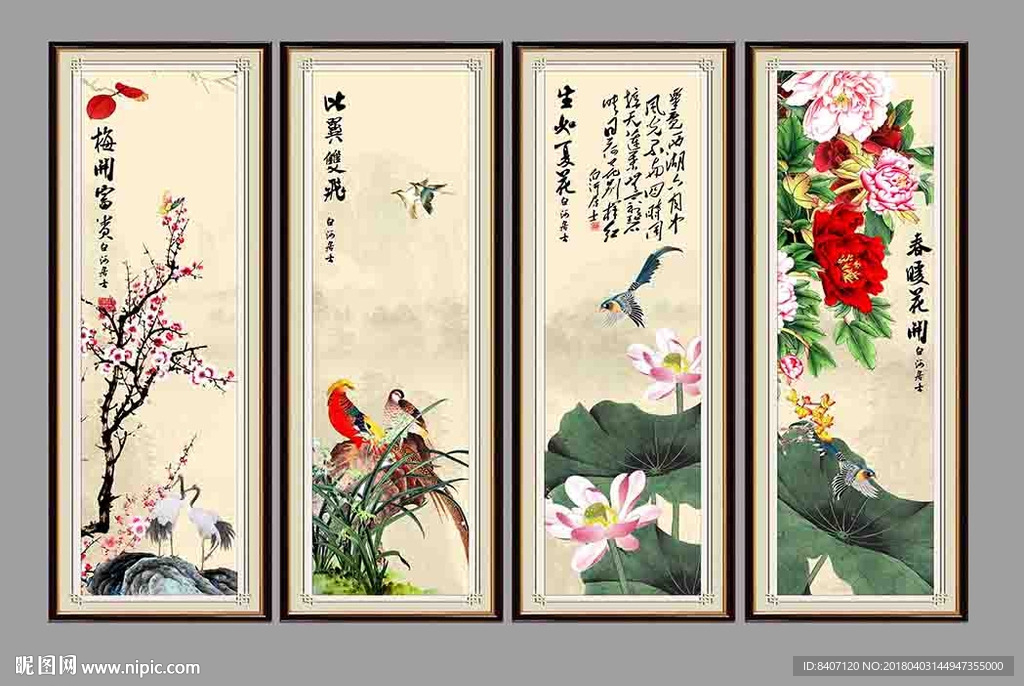 梅開富贵
白河居士
比翼雙飛
白河居士
生如夏花
白河居士
畢竟西湖六月中
風光不与四時同
接天蓮葉無窮碧
映日荷花别樣红
白河居士
春暖花開
白河居士
昵图网 www.nipic.com
ID:8407120 NO:20180403144947355000